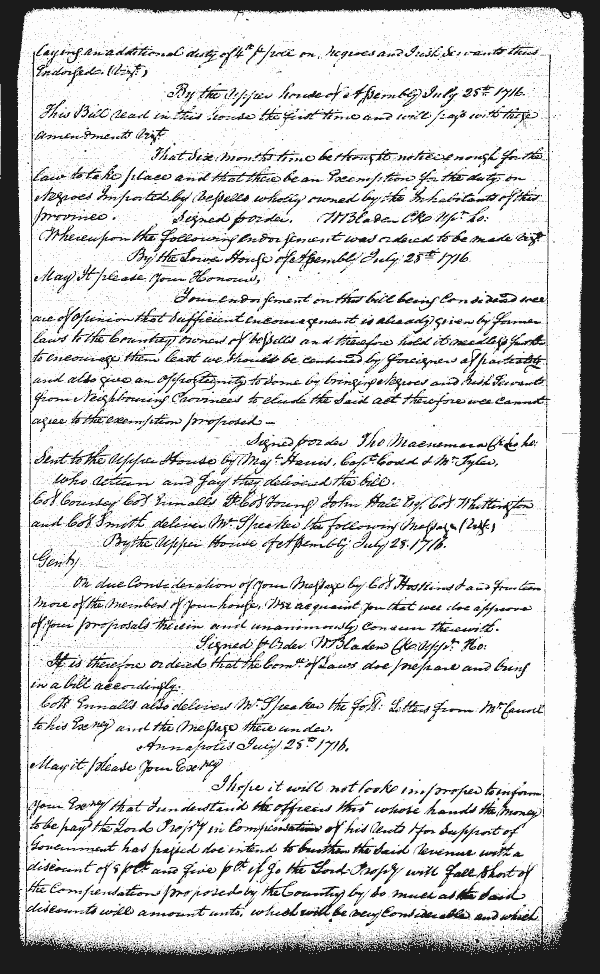 laying an additional duty of 4s p pole on Negroes and Irish Servants thus
Endorsed. (Vizt.)
By the Upper house of Assembly July 28th 1716.
This Bill read in this house the first time and will pass with these
amendments Vizt.
That Six months time be thought notice enough for the
law to take place and that there be an Exemption for the duty on
Negroes Imported by Vessells wholly owned by the Inhabitants of this
province. Signed p order. W Bladen Clk Upr. ho:
Whereupon the following Endorsement was ordered to be made Vizt
By the Lower House of Assembly July 28th 1716
May It please Your Honours,
Your endorsement on this bill being Considered wee
are of Opinion that Sufficient encouragement is already given by former
laws to the Country owners of Vessells and therefore hold it needless
to encourage them least we should be censured by foreigners of partiality
and also give an Opportunity to some by bringing Negroes and Irish Servants
from Neighbouring Provinces to elude the said act therefore wee cannot
agree to the exemption proposed —
Signed p order Tho Macnemara Clk ho.
Sent to the Upper House by Majr. Harris, Capt. Codd & Mr. Tyler,
who return and say they delivered the bill.
Col Coursey Col Ennalls Lt. Col Young John Hall Esq Col Whittington
and Col Smith deliver Mr. Speaker the following Message (Vizt.)
By the Upper House of Assembly July 28. 1716.
Gentn
On due Consideration of your Message by Col Hoskins & and fourteen
more of the Members of your house, Wee acquaint you that wee doe approve
of your proposals therein and unanimously Concur therewith.
Signed p Order W Bladen Clk Uppr. Ho:
It is therefore ordered that the Comee. of Laws doe prepare and bring
in a bill accordingly.
Coll Ennalls also delivers Mr. Speaker the foll: Letters from Mr Carroll
to his Excey and the Message there under.
Annapolis July 28th 1716.
May it please Your Excey
I hope it will not looke improper to inform
your Excey that I understand the officers thro' whose hands the Money
to be payd the Lord Propry in Compensation of his rents & for Support of
Government has passed doe intend to burthen the said Revenue with a
discount of 8 p Ct. and five p Ct. if so the Lord Propry will fall short of
the Compensations proposed by the Country by so much as the said
discounts will amount unto, which will be very Considerable and which